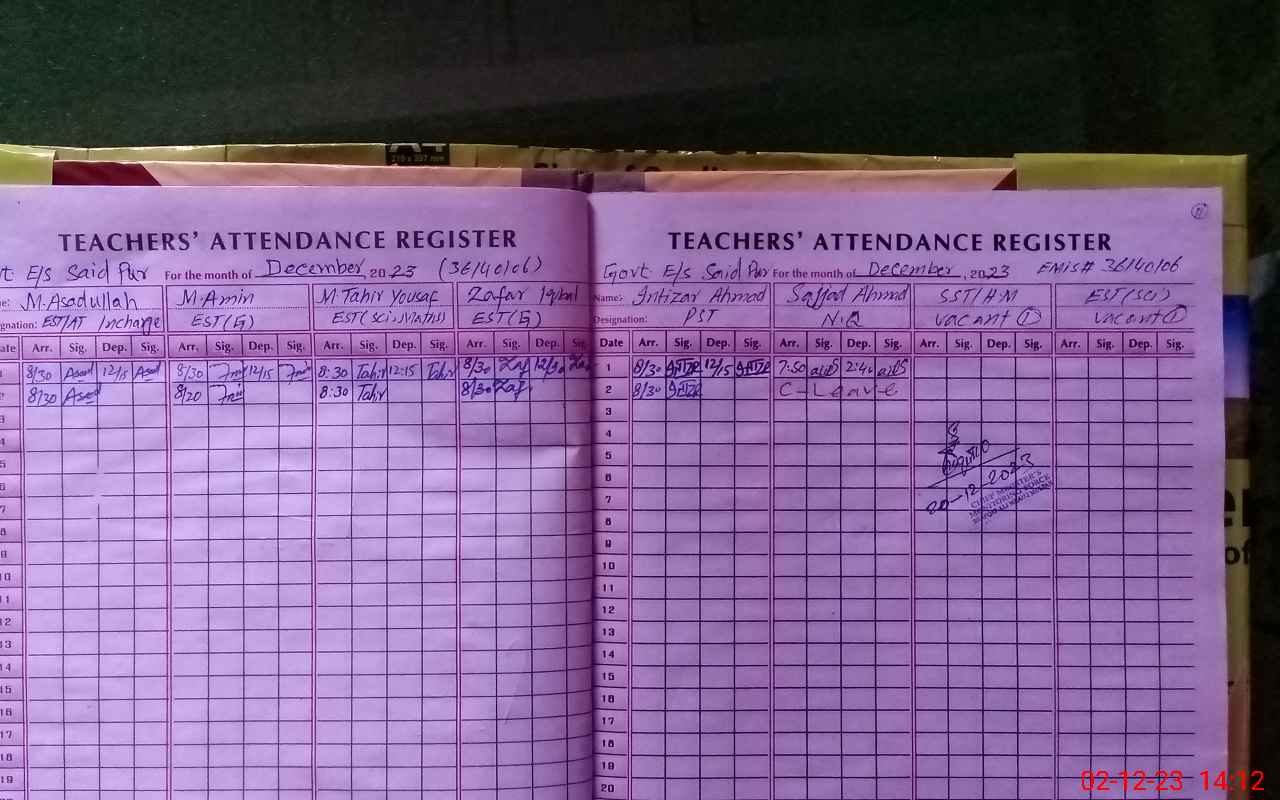 A4
210 x 297 mm
TEACHERS' ATTENDANCE REGISTER
E/s Said Pur For the month of December, 2023 (36140106)
M. Asadullah M. Amin M. Tahir Yousaf Zafar Iqbal
gnation: EST/AT Incharge EST(G) EST(Sci. Maths) EST(G)
ate Arr. Sig. Dep. Sig. Arr. Sig. Dep. Sig. Arr. Sig. Dep. Sig. Arr. Sig. Dep. Sig.
8/30 Asad 12/15 Asad 8/30 12/15 8:30 Tahir 12:15 Tahir 8/30 Zaf 12/30 Za
8/30 Asad 8/20 8:30 Tahir 8/30 Zaf
3
4
5
6
7
8
9
10
11
12
13
14
15
16
17
18
19
11
TEACHERS' ATTENDANCE REGISTER
Govt E/s Said Pur For the month of December, 2023 EMIS# 36140106
Name:- Intizar Ahmad Sajjad Ahmad SST/H.M EST(Sci)
Designation: PST N.Q Vacant 1 Vacant 1
Date Arr. Sig. Dep. Sig. Arr. Sig. Dep. Sig. Arr. Sig. Dep. Sig. Arr. Sig. Dep. Sig.
1 8/30 12/15 7:50 2:40
2 8/30 C-Leave
3
4
5
6
7
8
9
10
11
12
13
14
15
16
17
18
19
20
20-12-2023
CHIEF MINISTER'S
MONITORING FORCE
of
02-12-23 14:12